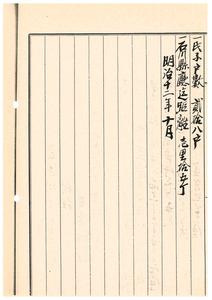 一氏子戸數 貳拾八戸
一所縣廳迄距離 壱里拾五丁
明治十二年十月